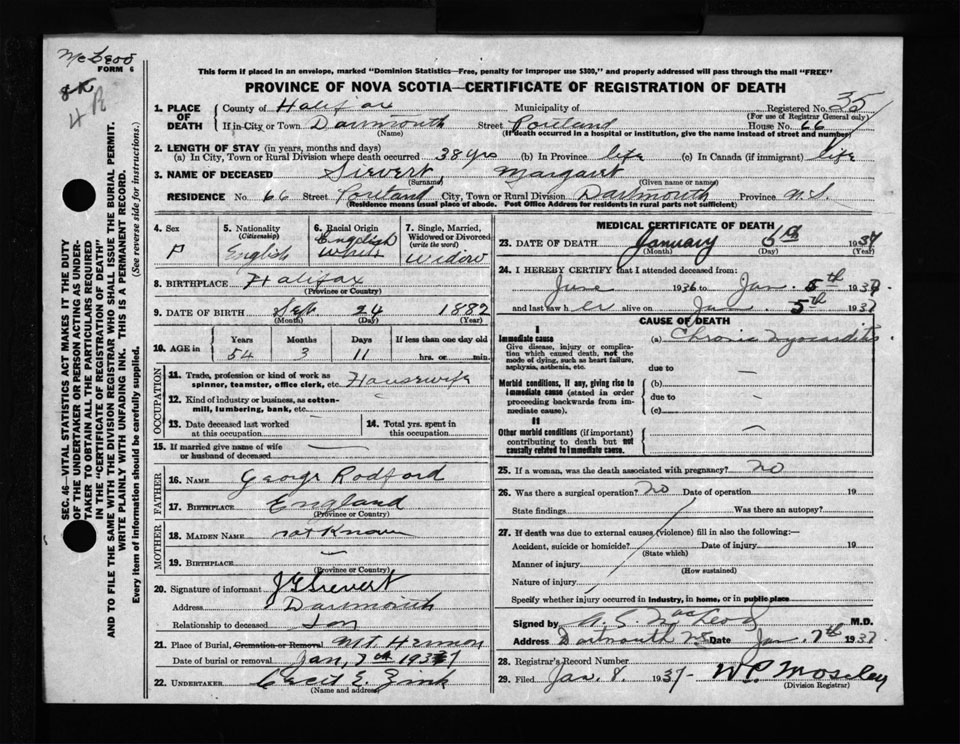 McLeod
FORM 6
This form if placed in an envelope, marked "Dominion Statistics—Free, penalty for improper use $300," and properly addressed will pass through the mail "FREE"
PROVINCE OF NOVA SCOTIA—CERTIFICATE OF REGISTRATION OF DEATH
1. PLACE OF DEATH
County of Halifax Municipality of Registered No. 35
(For use of Registrar General only)
If in City or Town Dartmouth Street Portland House No. 66
(Name) (If death occurred in a hospital or institution, give the name instead of street and number)
2. LENGTH OF STAY (in years, months and days)
(a) In City, Town or Rural Division where death occurred 38 yrs (b) In Province life (c) In Canada (if immigrant) life
3. NAME OF DECEASED Sievert, Margaret
(Surname) (Given name or names)
RESIDENCE No. 66 Street Portland City, Town or Rural Division Dartmouth Province N.S.
(Residence means usual place of abode. Post Office Address for residents in rural parts not sufficient)
4. Sex
5. Nationality (Citizenship) English
6. Racial Origin English White
7. Single, Married, Widowed or Divorced (write the word) Widow
8. BIRTHPLACE Halifax
(Province or Country)
9. DATE OF BIRTH Sept 24 1882
(Month) (Day) (Year)
10. AGE in Years Months Days If less than one day old
54 3 11 hrs. or min.
OCCUPATION
11. Trade, profession or kind of work as spinner, teamster, office clerk, etc. Housewife
12. Kind of industry or business, as cotton-mill, lumbering, bank, etc.
13. Date deceased last worked at this occupation
14. Total yrs. spent in this occupation
15. If married give name of wife or husband of deceased
FATHER
16. NAME George Rodford
17. BIRTHPLACE England
(Province or Country)
MOTHER
18. MAIDEN NAME not known
19. BIRTHPLACE
(Province or Country)
20. Signature of informant J G Sievert
Address Dartmouth
Relationship to deceased Son
21. Place of Burial, Cremation or Removal Mt. Hermon
Date of burial or removal Jan, 7th 1937
22. UNDERTAKER Cecil E. Zink
(Name and address)
MEDICAL CERTIFICATE OF DEATH
23. DATE OF DEATH January 5th 1937
(Month) (Day) (Year)
24. I HEREBY CERTIFY that I attended deceased from:
June 1936 to Jan. 5th 1937
and last saw her alive on Jan. 5th 1937
CAUSE OF DEATH
I
Immediate cause
Give disease, injury or complication which caused death, not the mode of dying, such as heart failure, asphyxia, asthenia, etc.
(a) Chronic Myocarditis
due to —
Morbid conditions, if any, giving rise to immediate cause (stated in order proceeding backwards from immediate cause).
(b)
due to —
(c)
II
Other morbid conditions (if important) contributing to death but not causally related to immediate cause.
25. If a woman, was the death associated with pregnancy? no
26. Was there a surgical operation? no Date of operation 19
State findings Was there an autopsy?
27. If death was due to external causes (violence) fill in also the following:—
Accident, suicide or homicide? Date of injury 19
(State which)
Manner of injury
(How sustained)
Nature of injury
Specify whether injury occurred in industry, in home, or in public place
Signed by A. S. MacLeod M.D.
Address Dartmouth NS Date Jan. 7th 1937
28. Registrar's Record Number
29. Filed Jan. 8. 1937 W. Moseley
(Division Registrar)
SEC. 46—VITAL STATISTICS ACT MAKES IT THE DUTY
OF THE UNDERTAKER OR PERSON ACTING AS UNDER-
TAKER TO OBTAIN ALL THE PARTICULARS REQUIRED
IN THE "CERTIFICATE OF REGISTRATION OF DEATH"
AND TO FILE THE SAME WITH THE DIVISION REGISTRAR WHO SHALL ISSUE THE BURIAL PERMIT.
WRITE PLAINLY WITH UNFADING INK. THIS IS A PERMANENT RECORD.
Every item of information should be carefully supplied. (See reverse side for instructions.)